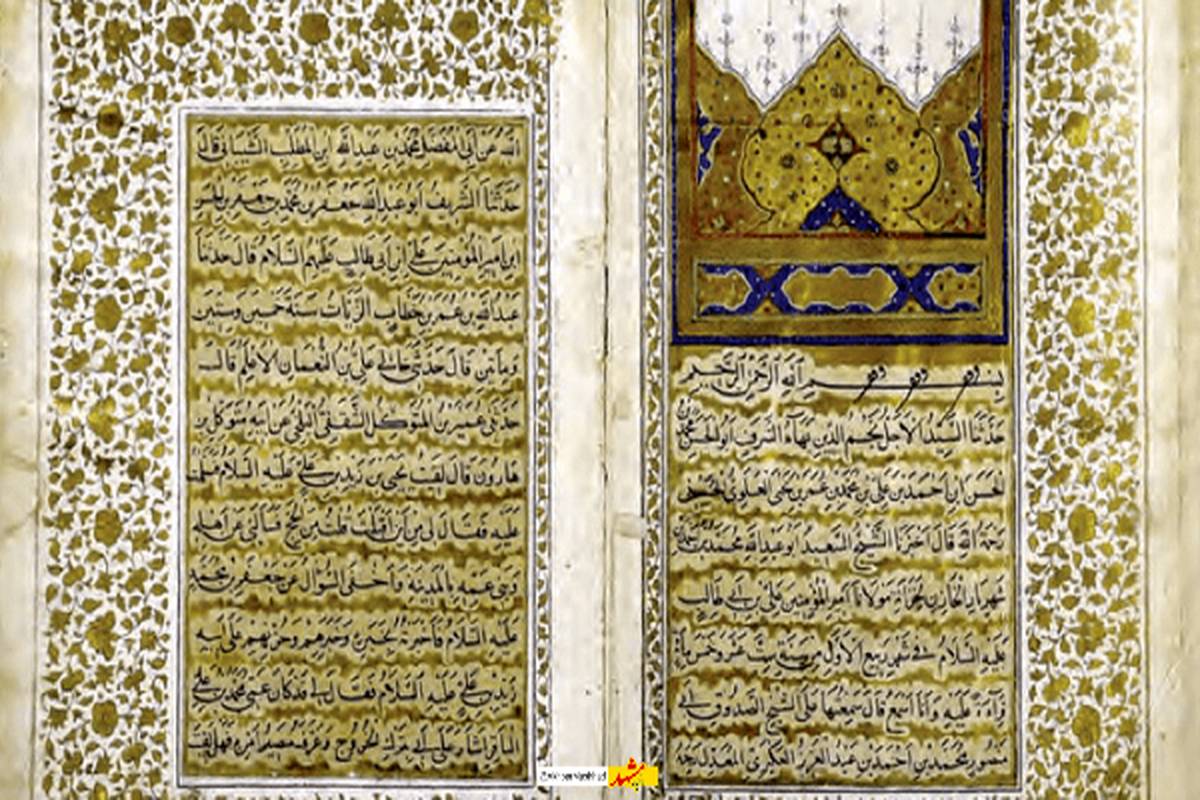 بسم الله الرحمن الرحيم
حدثنا السيد الاجل نجم الدين بهاء الشرف ابو الحسن محمد بن
الحسن ابن احمد بن علي بن محمد بن عمر بن يحيى العلوي الحسيني
رحمة الله قال اخبرنا الشيخ السعيد ابو عبد الله محمد بن احمد بن
شهريار الخازن لخزانة مولانا امير المؤمنين علي بن ابي طالب
عليه السلام في شهر ربيع الاول من سنة ست عشر وخمس مائة
قراءة عليه وانا اسمع قال سمعتها على الشيخ الصدوق ابي
منصور محمد بن احمد بن عبد العزيز العكبري المعدل رحمه
الله عن ابي المفضل محمد بن عبد الله ابن المطلب الشيباني قال
حدثنا الشريف ابو عبد الله جعفر بن محمد بن جعفر بن الحسن
ابن امير المؤمنين علي ابن ابي طالب عليهم السلام قال حدثنا
عبد الله بن عمر بن خطاب الزيات سنة خمس وستين
ومأتين قال حدثني خالي علي بن النعمان الاعلم قال
حدثني عمير بن المتوكل الثقفي البلخي عن ابيه متوكل بن
هارون قال لقيت يحيى بن زيد بن علي عليه السلام فسلمت
عليه فقال لي من اين اقبلت قلت من الحج فسألني عن اهله
وبني عمه بالمدينه واحفى السؤال عن جعفر بن محمد
عليه السلام فاخبرته بخبره وخبرهم وحزنهم على ابيه
زيد بن علي عليه السلام فقال لي قد كان عمي محمد بن علي
الباقر اشار على ابي بترك الخروج وعرفه
مشهد